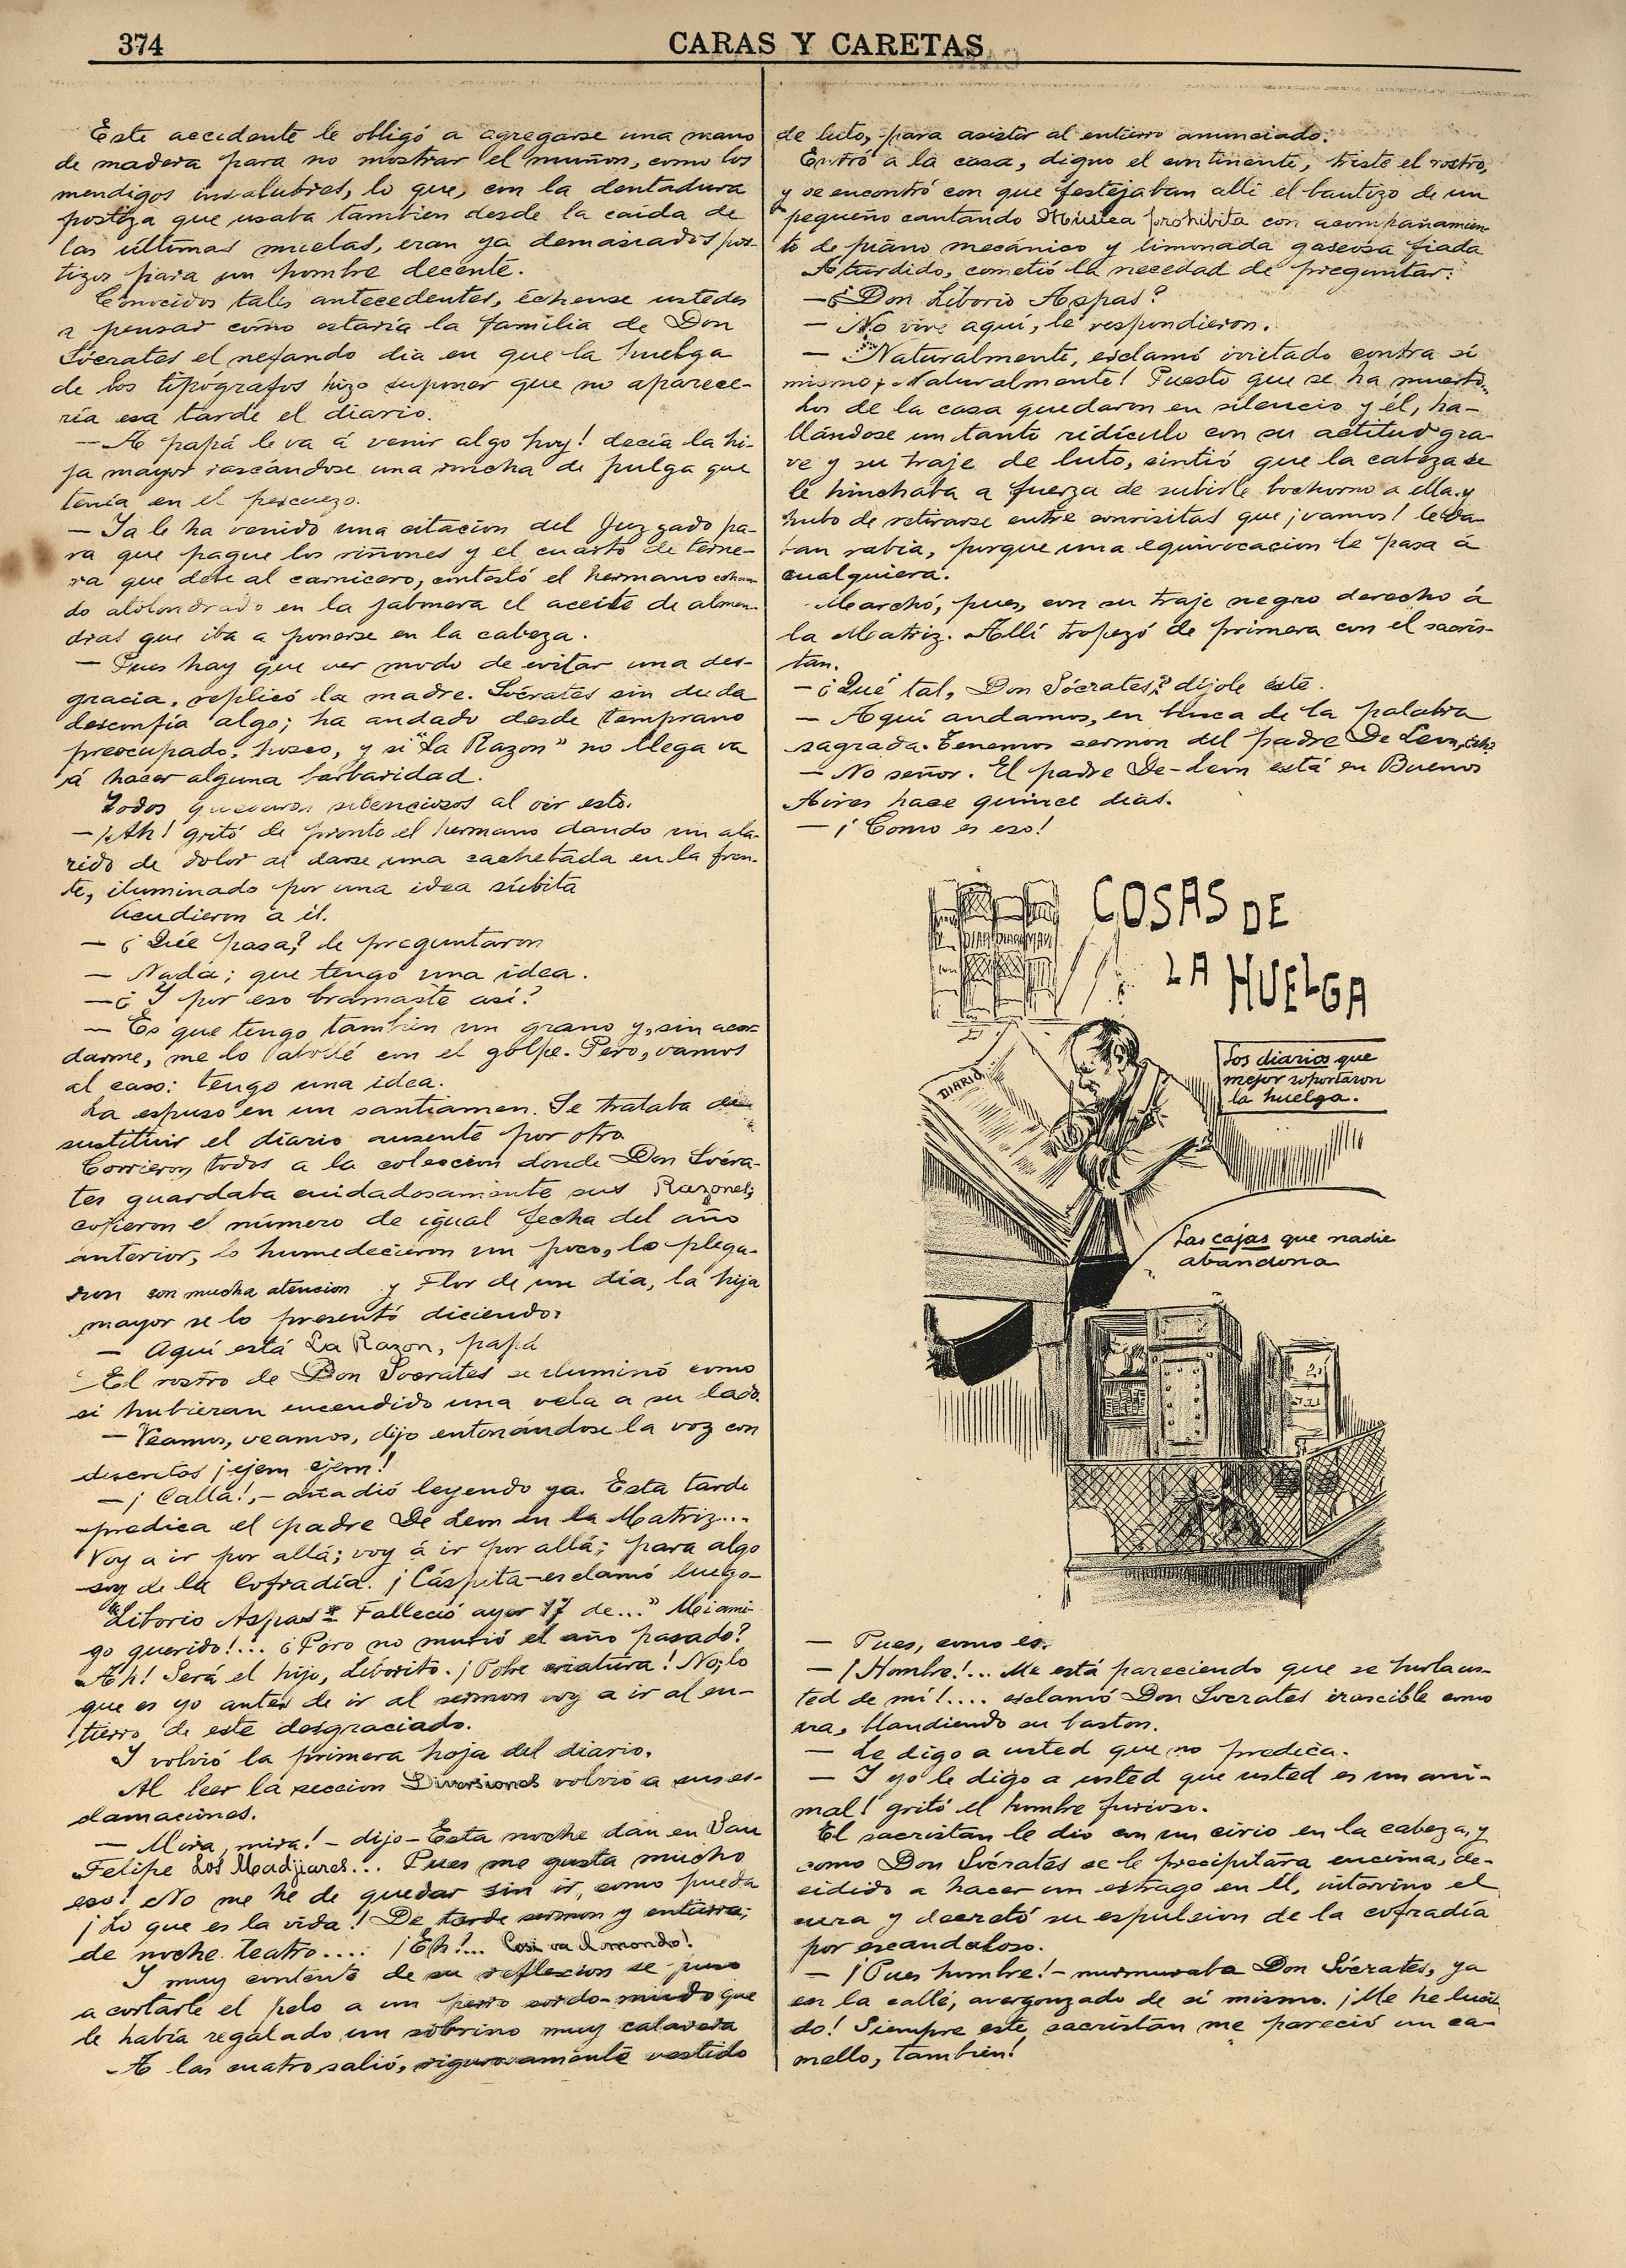 374
CARAS Y CARETAS
Este accidente le obligó a agregarse una mano
de madera para no mostrar el muñon, como los
mendigos insalubres, lo que, con la dentadura
postiza que usaba tambien desde la caida de
las últimas muelas, eran ya demasiados pos-
tizos para un hombre decente.
Conocidos tales antecedentes, échense ustedes
a pensar cómo estaría la familia de Don
Sócrates el nefando dia en que la huelga
de los tipógrafos hizo suponer que no aparece-
ría esa tarde el diario.
— A papá le va á venir algo hoy! decía la hi-
ja mayor rascándose una roncha de pulga que
tenía en el pescuezo.
— Ya le ha venido una citacion del Juzgado pa-
ra que pague los riñones y el cuarto de terne-
ra que debe al carnicero, contestó el hermano echan-
do atolondrado en la jabonera el aceite de almen-
dras que iba a ponerse en la cabeza.
— Pues hay que ver modo de evitar una des-
gracia, replicó la madre. Sócrates sin duda
desconfía algo; ha andado desde temprano
preocupado, hosco, y si "La Razon" no llega va
á hacer alguna barbaridad.
Todos quedaron silenciosos al oir esto.
— ¡Ah! gritó de pronto el hermano dando un ala-
rido de dolor al darse una cachetada en la fren-
te, iluminado por una idea súbita
Acudieron a él.
— ¿Qué pasa? le preguntaron
— Nada; que tengo una idea.
— ¿Y por eso bramaste así?
— Es que tengo tambien un grano y, sin acor-
darme, me lo abollé con el golpe. Pero, vamos
al caso: tengo una idea.
La espuso en un santiamen. Se trataba de
sustituir el diario ausente por otro
Corrieron todos a la coleccion donde Don Sócra-
tes guardaba cuidadosamente sus Razones;
cojieron el número de igual fecha del año
anterior, lo humedecieron un poco, lo plega-
ron con mucha atencion y Flor de un dia, la hija
mayor se lo presentó diciendo:
— Aquí está La Razon, papá
El rostro de Don Socrates se iluminó como
si hubieran encendido una vela a su lado.
— Veamos, veamos, dijo entonándose la voz con
discretos ¡ejem ejem!
— ¡Calla!, - añadió leyendo ya. Esta tarde
predica el padre De Leon en la Matriz...
Voy a ir por allá; voy á ir por allá; para algo
soy de la Cofradía. ¡Cáspita - esclamó luego -
"Liborio Aspas Falleció ayer 17 de..." Mi ami-
go querido!... ¿Pero no murió el año pasado?
Ah! Será el hijo, Liborito. ¡Pobre criatura! No; lo
que es yo antes de ir al sermon voy a ir al en-
tierro de este desgraciado.
Y volvió la primera hoja del diario.
Al leer la seccion Diversiones volvió a sus es-
clamaciones.
— Mira, mira! - dijo - Esta noche dan en San
Felipe Los Madjiares... Pues me gusta mucho
eso! No me he de quedar sin ir, como pueda
¡Lo que es la vida! De tarde sermon y entierro;
de noche teatro.... ¡Eh!... Cosi va il mondo!
Y muy contento de su reflexion se puso
a cortarle el pelo a un perro sordo-mudo que
le había regalado un sobrino muy calavera
A las cuatro salió, rigurosamente vestido
de luto, para asistir al entierro anunciado.
Entró a la casa, digno el continente, triste el rostro,
y se encontró con que festejaban allí el bautizo de un
pequeño cantando Música prohibita con acompañamien-
to de piano mecánico y limonada gaseosa fiada
Aturdido, cometió la necedad de preguntar:
— ¿Don Liborio Aspas?
— No vive aquí, le respondieron.
— Naturalmente, esclamó irritado contra sí
mismo ¡Naturalmente! Puesto que se ha muerto..
Los de la casa quedaron en silencio y él, ha-
llándose un tanto ridículo con su actitud gra-
ve y su traje de luto, sintió que la cabeza se
le hinchaba a fuerza de subirle bochorno a ella, y
hubo de retirarse entre sonrisitas que ¡vamos! le da-
ban rabia, porque una equivocacion le pasa á
cualquiera.
Marchó, pues, con su traje negro derecho á
la Matriz. Allí tropezó de primera con el sacris-
tan.
— ¿Qué tal, Don Sócrates? díjole éste.
— Aquí andamos, en busca de la palabra
sagrada. Tenemos sermon del padre De Leon, eh?
— No señor. El padre De-Leon está en Buenos
Aires hace quince dias.
— ¡Como es eso!
COSAS DE
LA HUELGA
DIARIO
Los diarios que
mejor reportaron
la huelga.
Las cajas que nadie
abandona
— Pues, como es.
— ¡Hombre!... Me está pareciendo que se burla us-
ted de mí!.... esclamó Don Socrates irascible como
era, blandiendo su baston.
— Le digo a usted que no predica.
— Y yo le digo a usted que usted es un ani-
mal! gritó el hombre furioso.
El sacristan le dió con un cirio en la cabeza, y
como Don Sócrates se le precipitára encima, de-
cidido a hacer un estrago en él, intervino el
cura y decretó su espulsion de la cofradía
por escandaloso.
— ¡Pues hombre! - murmuraba Don Sócrates, ya
en la calle, avergonzado de sí mismo. ¡Me he luci-
do! Siempre este sacristan me pareció un ca-
mello, tambien!